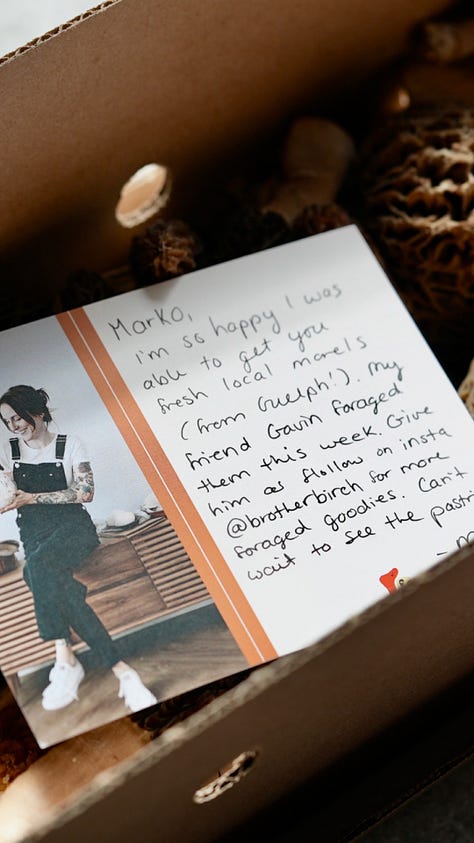 Marko,
i'm so happy I was
able to get you
fresh local morels
(from Guelph!). My
friend Gavin foraged
them this week. Give
him as follow on insta
@brotherbirch for more
foraged goodies. Can't
wait to see the